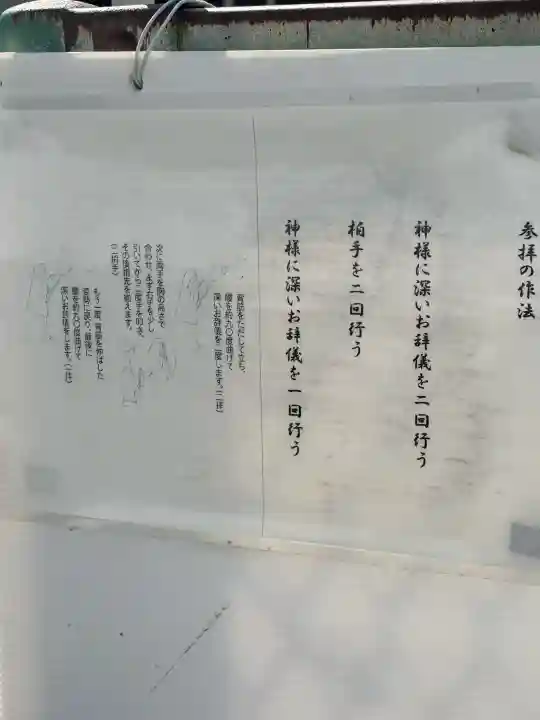 参拝の作法
神様に深いお辞儀を二回行う
柏手を二回行う
神様に深いお辞儀を一回行う
背筋をただして立ち、
腰を約九〇度曲げて
深いお辞儀を二度します。(二拝)
次に両手を胸の高さで
合わせ、まず右手を少し
引いてから二度手を叩き、
その後指先を揃えます。
(二拍手)
もう一度、背筋を伸ばした
姿勢に戻り、最後に
腰を約九〇度曲げて
深いお辞儀をします。(一拝)